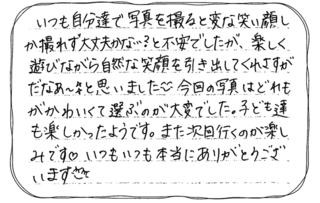 いつも自分達で写真を撮ると変な笑い顔し
か撮れず大丈夫かな…?と不安でしたが、楽しく
遊びながら自然な笑顔を引き出してくれさすが
だなあ～と思いました♡ 今回の写真はどれも
がかわいくて選ぶのが大変でした。子ども達
も楽しかったようです。また次回行くのが楽し
みです♡ いつもいつも本当にありがとうござ
います